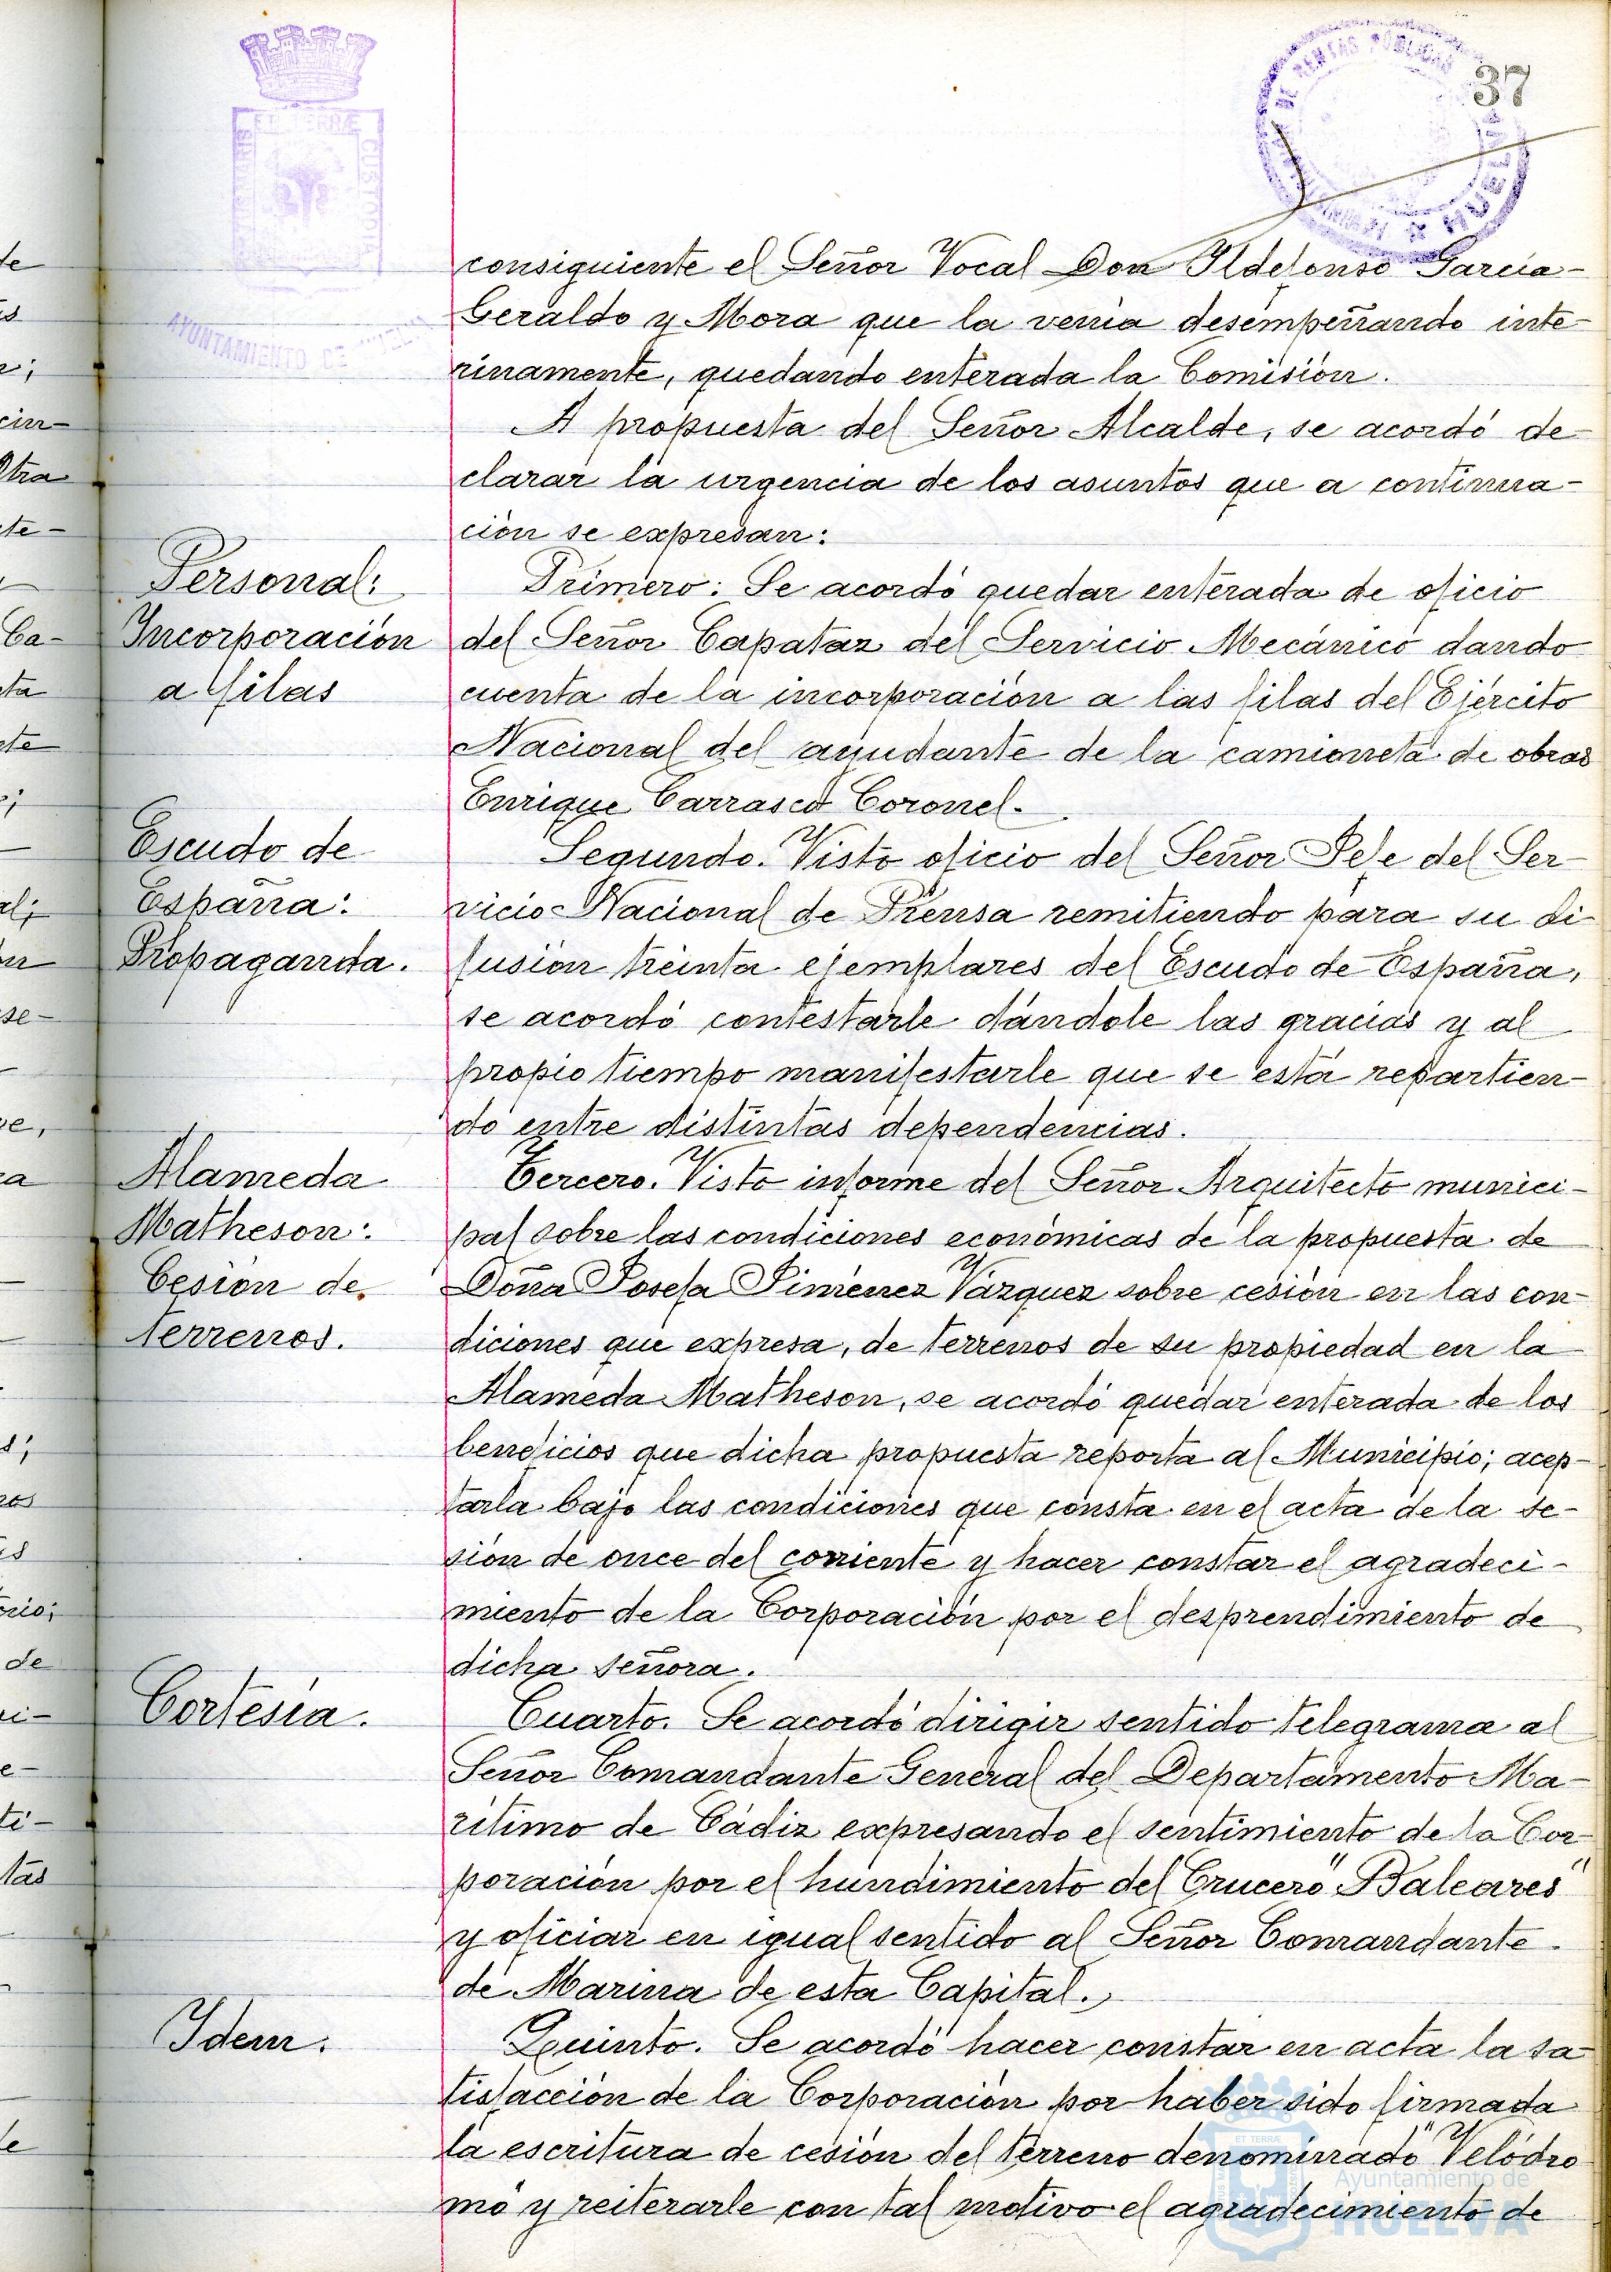 37
consiguiente el Señor Vocal Don Ildefonso García-
Geraldo y Mora que la venía desempeñando inte-
rinamente, quedando enterada la Comisión.
A propuesta del Señor Alcalde, se acordó de-
clarar la urgencia de los asuntos que a continua-
ción se expresan:
Personal:
Incorporación
a filas
Primero: Se acordó quedar enterada de oficio
del Señor Capataz del Servicio Mecánico dando
cuenta de la incorporación a las filas del Ejército
Nacional del ayudante de la camioneta de obras
Enrique Carrasco Coronel.
Escudo de
España:
Propaganda.
Segundo. Visto oficio del Señor Jefe del Ser-
vicio Nacional de Prensa remitiendo para su di-
fusión treinta ejemplares del Escudo de España,
se acordó contestarle dándole las gracias y al
propio tiempo manifestarle que se está repartien-
do entre distintas dependencias.
Alameda
Matheson:
Cesión de
terrenos.
Tercero. Visto informe del Señor Arquitecto munici-
pal sobre las condiciones económicas de la propuesta de
Doña Josefa Jiménez Vázquez sobre cesión en las con-
diciones que expresa, de terrenos de su propiedad en la
Alameda Matheson, se acordó quedar enterada de los
beneficios que dicha propuesta reporta al Municipio; acep-
tarla bajo las condiciones que consta en el acta de la se-
sión de once del corriente y hacer constar el agradeci-
miento de la Corporación por el desprendimiento de
dicha señora.
Cortesía.
Cuarto. Se acordó dirigir sentido telegrama al
Señor Comandante General del Departamento Ma-
rítimo de Cádiz expresando el sentimiento de la Cor-
poración por el hundimiento del Crucero "Baleares"
y oficiar en igual sentido al Señor Comandante
de Marina de esta Capital.
Idem.
Quinto. Se acordó hacer constar en acta la sa-
tisfacción de la Corporación por haber sido firmada
la escritura de cesión del terreno denominado "Velódro-
mo y reiterarle con tal motivo el agradecimiento de
AYUNTAMIENTO DE HUELVA
Ayuntamiento de
HUELVA